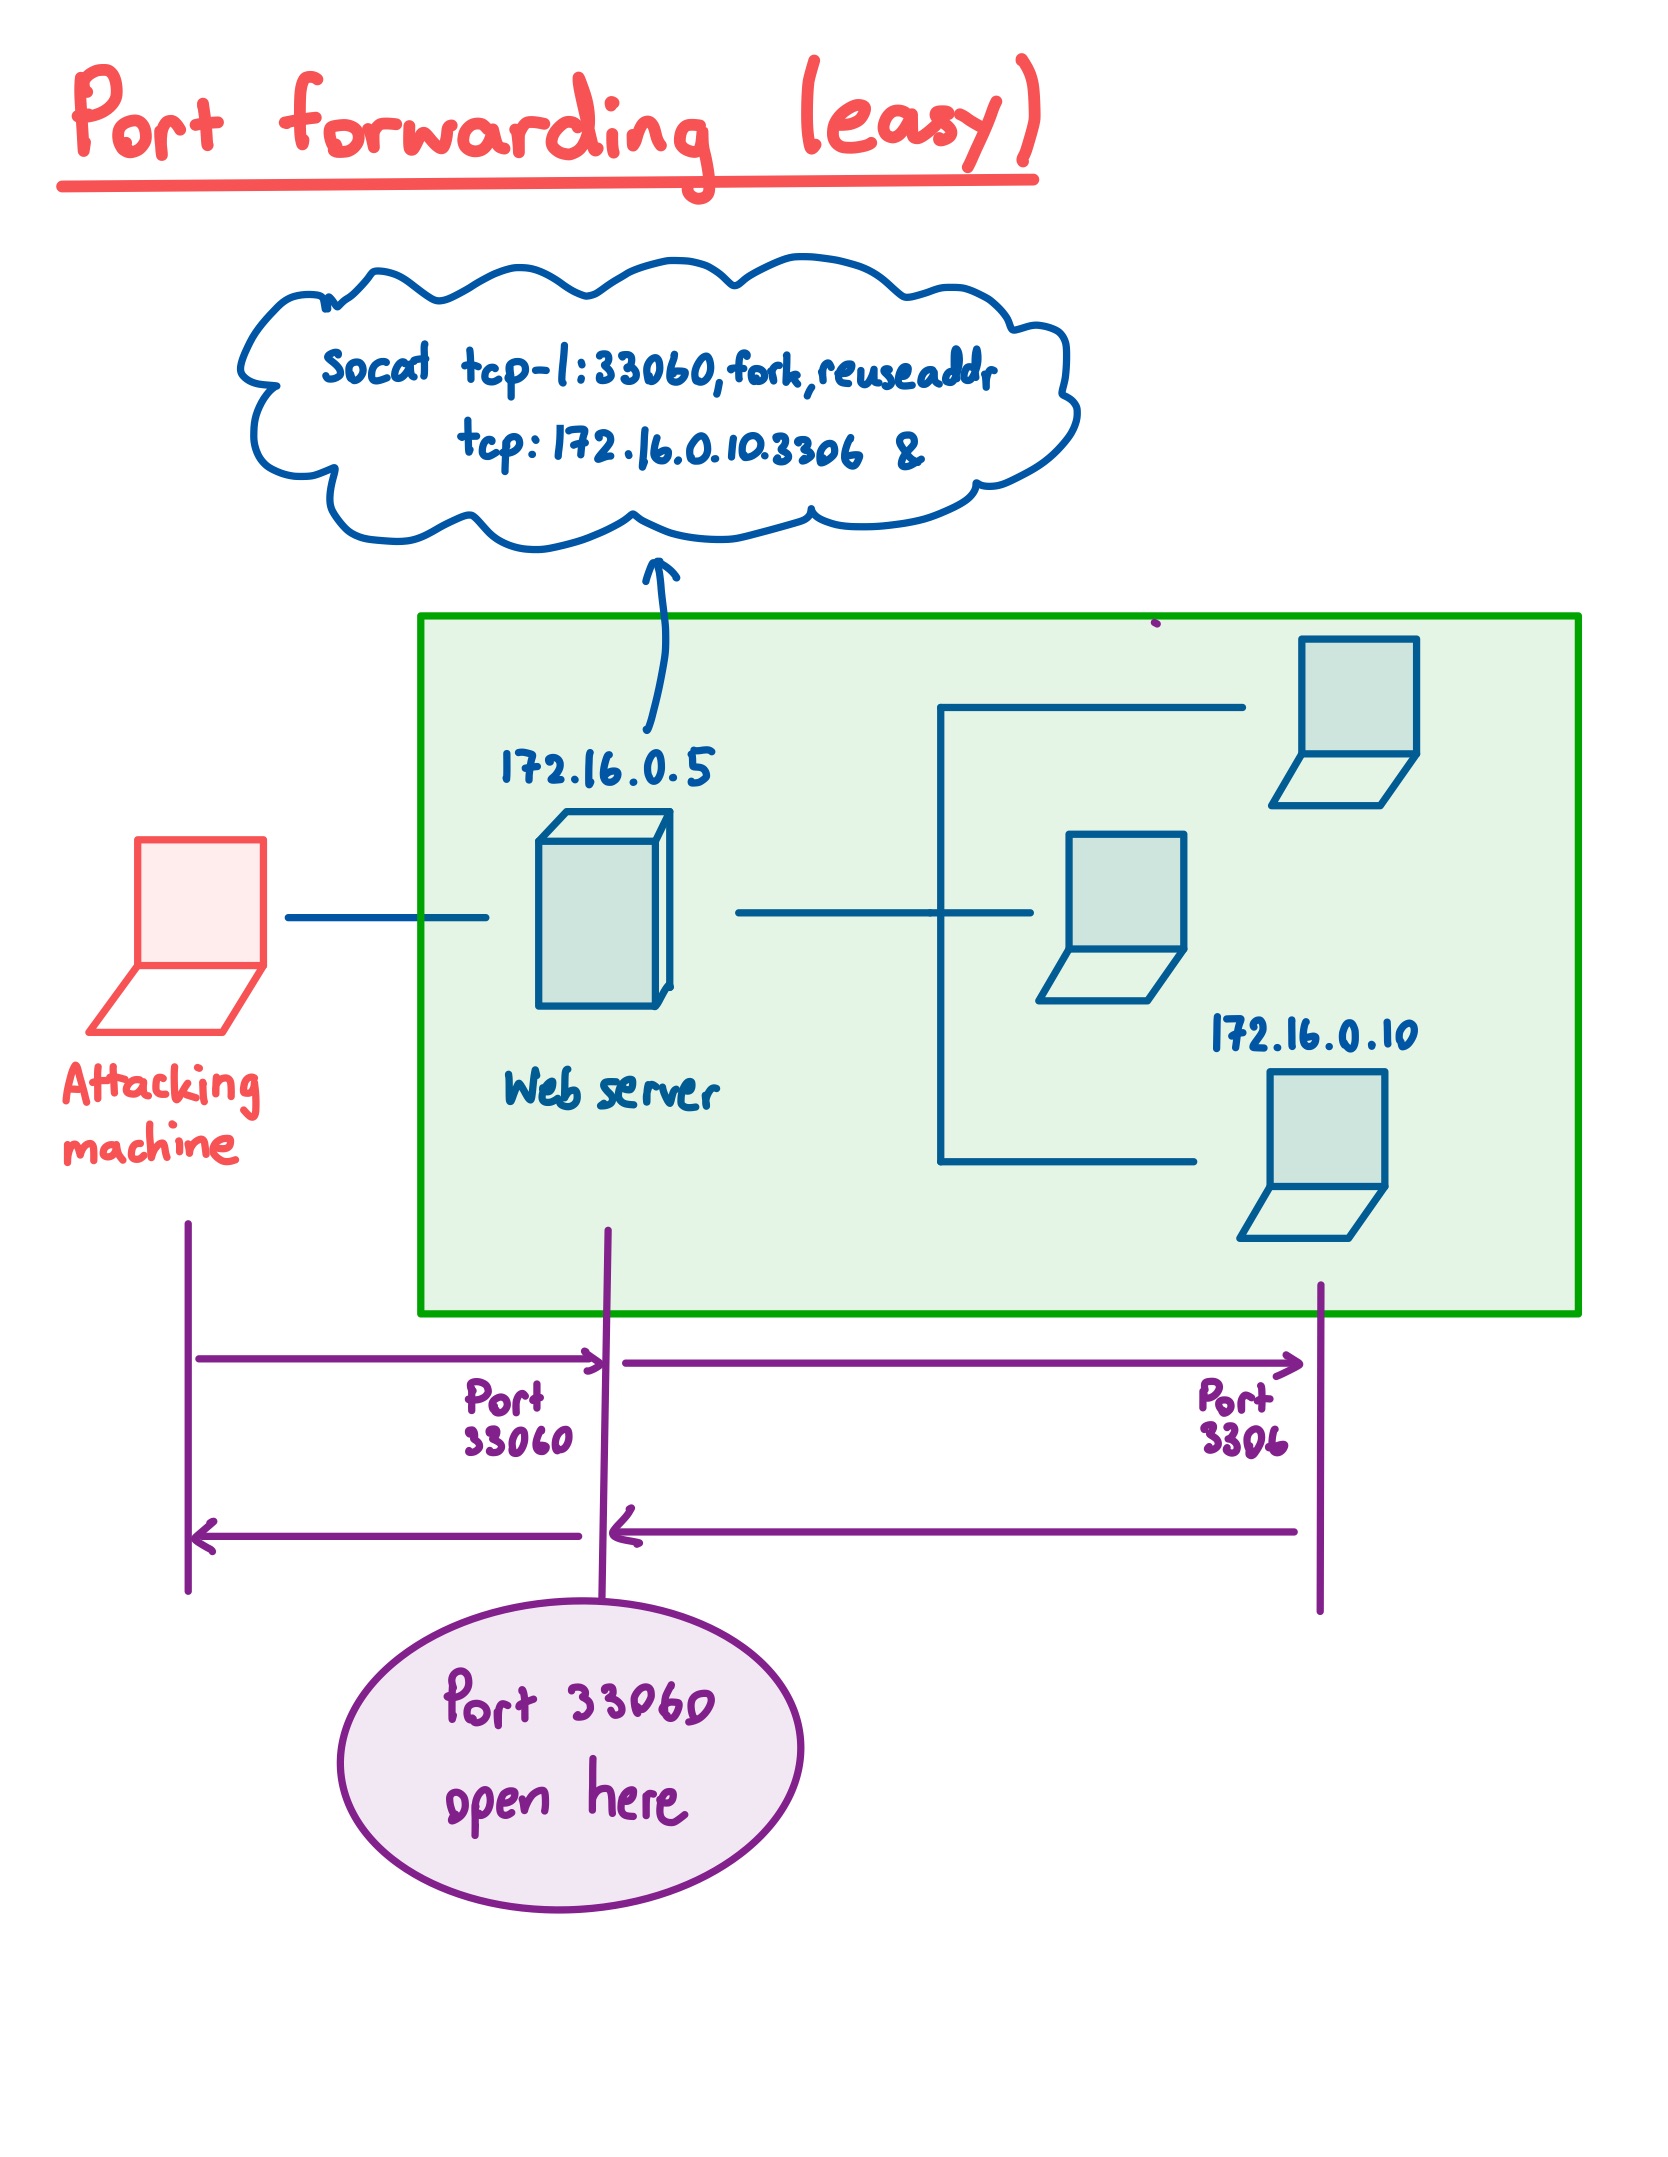 Port forwarding (easy)
socat tcp-l:33060,fork,reuseaddr
tcp:172.16.0.10.3306 &
172.16.0.5
172.16.0.10
Attacking
machine
Web server
Port
33060
Port
3306
Port 33060
open here